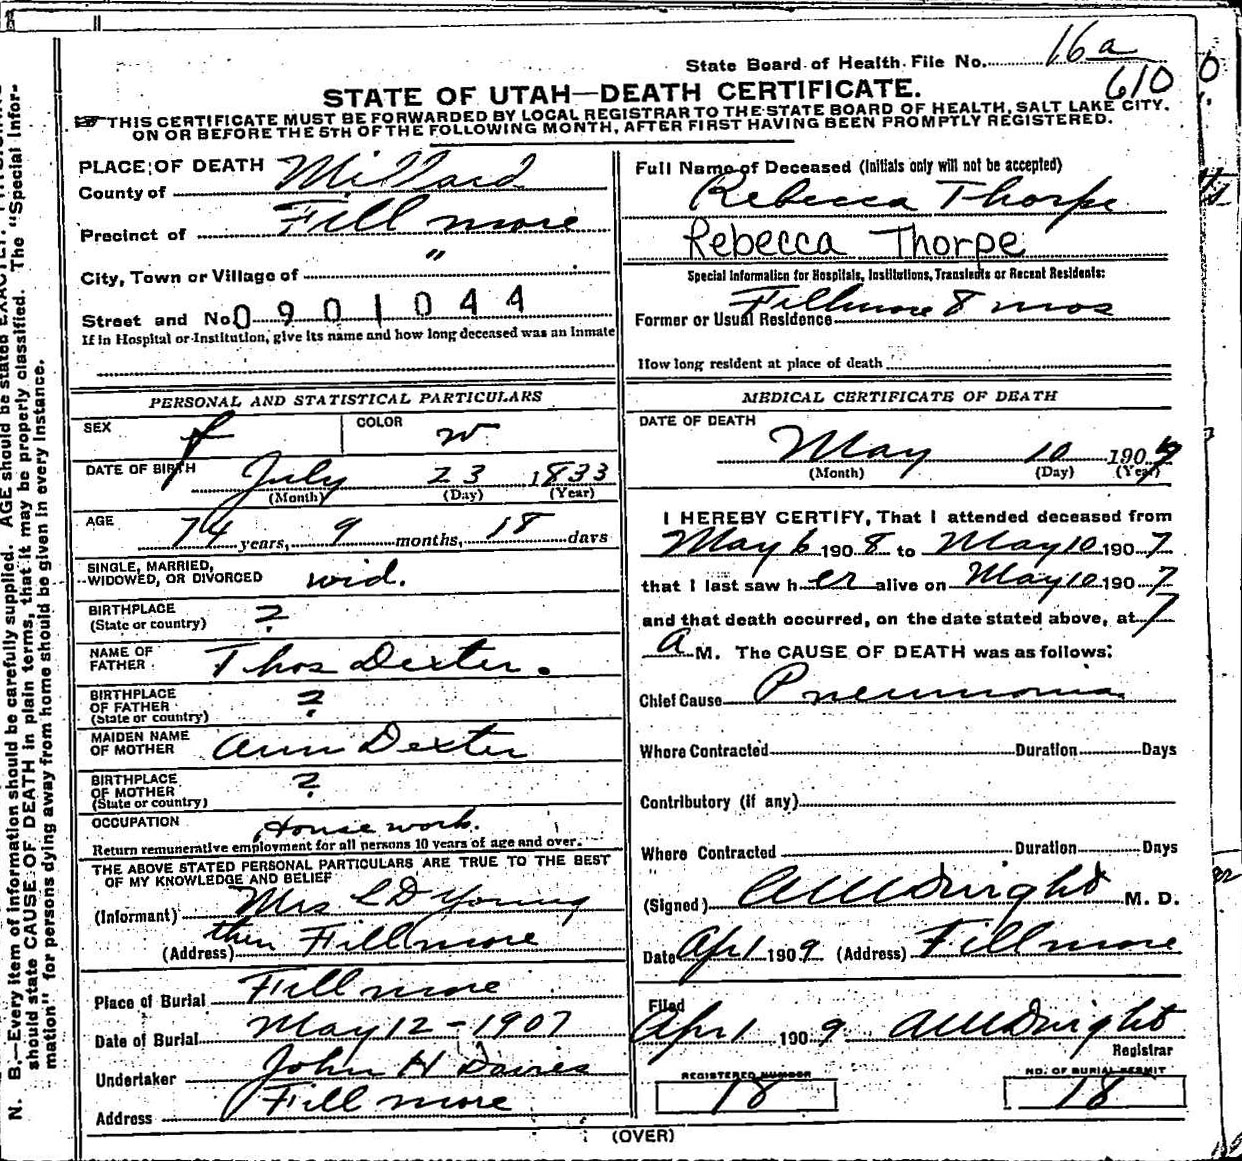 State Board of Health File No. 16a
610
STATE OF UTAH—DEATH CERTIFICATE.
THIS CERTIFICATE MUST BE FORWARDED BY LOCAL REGISTRAR TO THE STATE BOARD OF HEALTH, SALT LAKE CITY.
ON OR BEFORE THE 5TH OF THE FOLLOWING MONTH, AFTER FIRST HAVING BEEN PROMPTLY REGISTERED.
PLACE OF DEATH
County of Millard
Precinct of Fillmore
City, Town or Village of "
Street and No. 0901044
If in Hospital or Institution, give its name and how long deceased was an Inmate
Full Name of Deceased (Initials only will not be accepted)
Rebecca Thorpe
Rebecca Thorpe
Special Information for Hospitals, Institutions, Transients or Recent Residents:
Former or Usual Residence Fillmore 8 mos
How long resident at place of death
PERSONAL AND STATISTICAL PARTICULARS
SEX f COLOR w
DATE OF BIRTH July 23 1833
(Month) (Day) (Year)
AGE 74 years, 9 months, 18 days
SINGLE, MARRIED,
WIDOWED, OR DIVORCED wid.
BIRTHPLACE
(State or country) ?
NAME OF
FATHER Thos Dexter.
BIRTHPLACE
OF FATHER
(State or country) ?
MAIDEN NAME
OF MOTHER Ann Dexter
BIRTHPLACE
OF MOTHER
(State or country) ?
OCCUPATION House work.
Return remunerative employment for all persons 10 years of age and over.
THE ABOVE STATED PERSONAL PARTICULARS ARE TRUE TO THE BEST
OF MY KNOWLEDGE AND BELIEF
(Informant) Mrs L D Young
then
(Address) Fillmore
Place of Burial Fillmore
Date of Burial May 12-1907
Undertaker John H Davies
Address Fillmore
MEDICAL CERTIFICATE OF DEATH
DATE OF DEATH
May 10 190
(Month) (Day) (Year)
I HEREBY CERTIFY, That I attended deceased from
May 6 1908 to May 10 1907
that I last saw her alive on May 10 1907
and that death occurred, on the date stated above, at 7
a M. The CAUSE OF DEATH was as follows:
Chief Cause Pneumonia
Where Contracted Duration Days
Contributory (if any)
Where Contracted Duration Days
(Signed) Dwight M. D.
Date Apr 1 1909 (Address) Fillmore
Filed
Apr 1 1909 Dwight
Registrar
REGISTERED NUMBER
18
NO. OF BURIAL PERMIT
18
(OVER)
N. B.—Every item of information should be carefully supplied. AGE should be stated EXACTLY.
should state CAUSE OF DEATH in plain terms, that it may be properly classified. The "Special Infor-
mation" for persons dying away from home should be given in every instance.